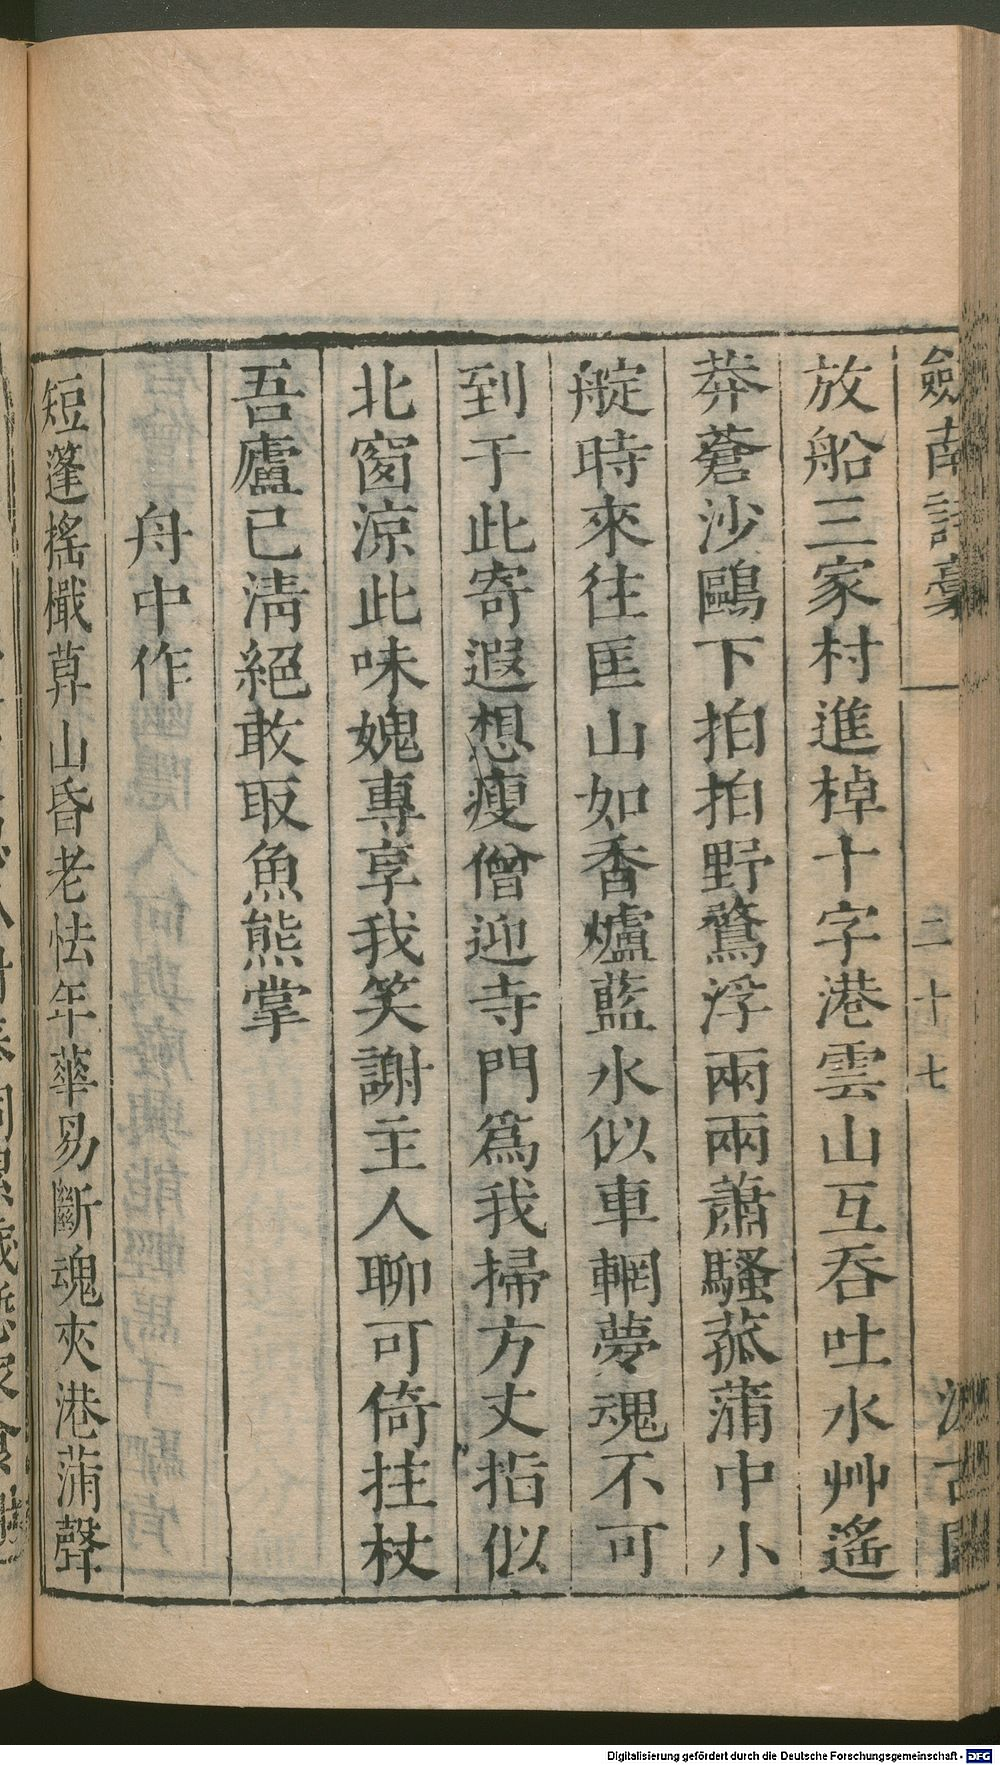 劒南詩稾
二十七
放船三家村進棹十字港雲山互吞吐水艸遙
莽蒼沙鷗下拍拍野鶩浮兩兩蕭騷菰蒲中小
艇時來往匡山如香爐藍水似車輞夢魂不可
到于此寄遐想瘦僧迎寺門爲我掃方丈指似
北窗涼此味媿專享我笑謝主人聊可倚拄杖
吾廬已淸絕敢取魚熊掌
舟中作
短篷搖檝莽山昏老怯年華易斷魂夾港蒲聲
Digitalisierung gefördert durch die Deutsche Forschungsgemeinschaft - DFG